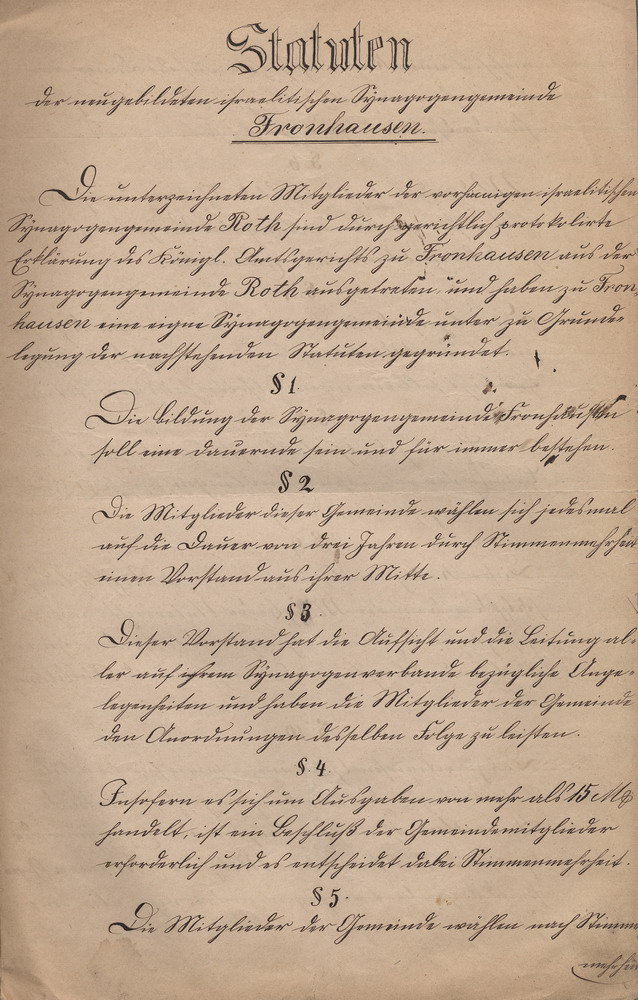 Statuten
der neugebildeten israelitischen Synagogengemeinde
Fronhausen.
Die unterzeichneten Mitglieder der vorhanigen israelitischen
Synagogengemeinde Roth sind durch gerichtlich protokolirte
Erklärung des Königl. Amtsgerichts zu Fronhausen aus der
Synagogengemeinde Roth ausgetreten und haben zu Fron
hausen eine eigne Synagogengemeinde unter zu Grunde-
legung der nachstehenden Statuten gegründet.
§ 1.
Die Bildung der Synagogengemeinde Fronhausen
soll eine dauernde sein und für immer bestehen.
§ 2
Die Mitglieder dieser Gemeinde wählen sich jedesmal
auf die Dauer von drei Jahren durch Stimmenmehrheit
einen Vorstand aus ihrer Mitte.
§ 3.
Dieser Vorstand hat die Aufsicht und die Leitung al-
ler auf ihrem Synagogenverbande bezügliche Ange-
legenheiten und haben die Mitglieder der Gemeinde
den Anordnungen desselben Folge zu leisten.
§. 4.
Insofern es sich um Ausgaben von mehr als 15 M
handelt, ist ein Beschluß der Gemeindemitglieder
erforderlich und es entscheidet dabei Stimmenmehrheit.
§ 5.
Die Mitglieder der Gemeinde wählen nach Stimmen
mehrheit